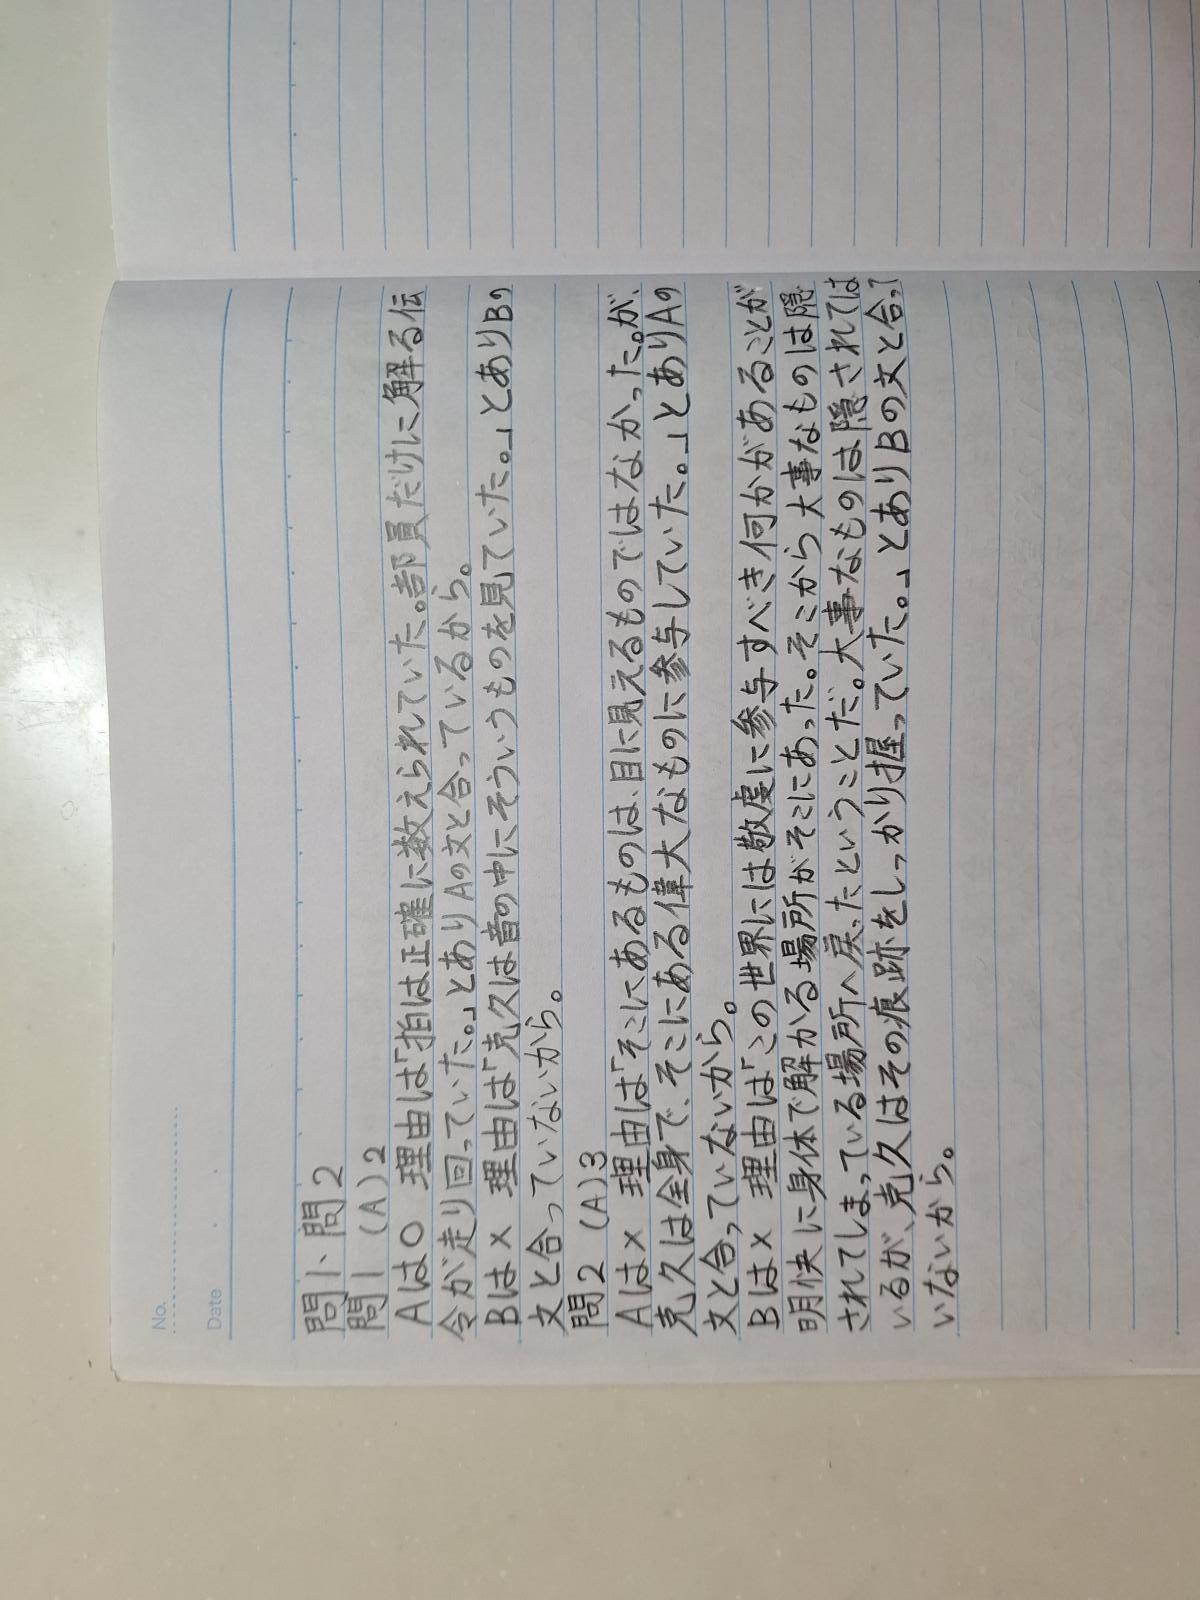 No.
Date
問1・問2
問1 (A) 2
Aは○ 理由は「拍は正確に数えられていた。部員だけに解る伝
令が走り回っていた。」とありAの文と合っているから。
Bは× 理由は「克久は音の中にそういうものを見ていた。」とありBの
文と合っていないから。
問2 (A) 3
Aは× 理由は「そこにあるものは、目に見えるものではなかった。が、
克久は全身で、そこにある偉大なものに参与していた。」とありAの
文と合っていないから。
Bは× 理由は「この世界には敬虔に参与すべき何かがあることが
明快に身体で解かる場所がそこにあった。そこから大事なものは隠
されてしまっている場所へ戻ったということだ。大事なものは隠されては
いるが、克久はその痕跡をしっかり握っていた。」とありBの文と合って
いないから。